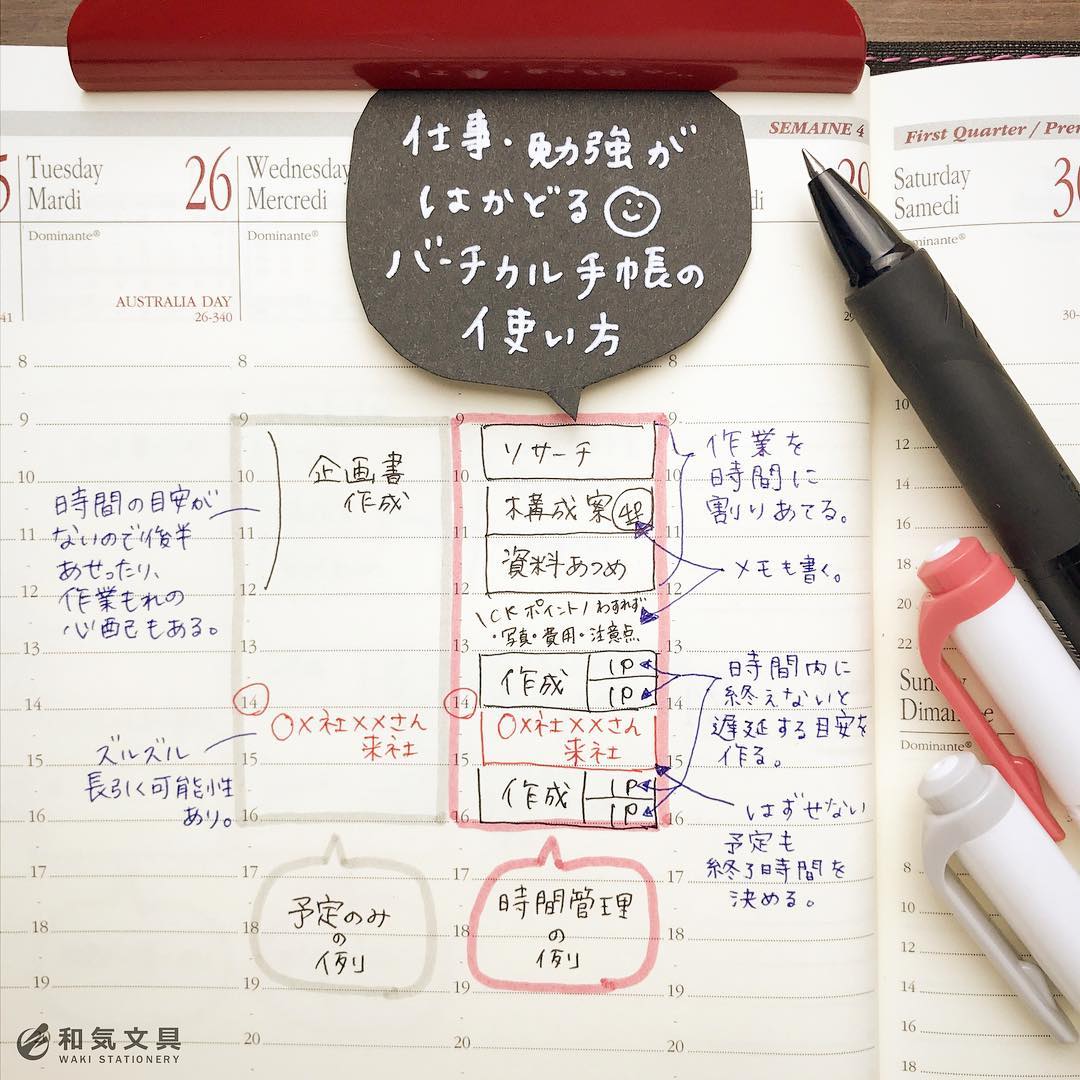 仕事・勉強が
はかどる
バーチカル手帳の
使い方
SEMAINE 4
First Quarter / Prem
Tuesday
Mardi
26
Wednesday
Mercredi
29
Saturday
Samedi
30
Dominante®
Dominante®
AUSTRALIA DAY
26-340
8
8
8
9
9
9
10
10
10
10
11
11
11
12
12
12
13
13
13
14
14
14
15
15
15
16
16
16
17
17
17
18
18
18
19
19
19
20
20
20
企画書
作成
時間の目安が
ないので後半
あせったり、
作業もれの
心配もある。
〇×社××さん
来社
ズルズル
長引く可能性
あり。
予定のみ
の
例
リサーチ
構成案
資料あつめ
\CKポイント/わすれず
・写真・費用・注意点
作成
1P
1P
〇×社××さん
来社
作成
1P
1P
時間管理
の
例
作業を
時間に
割りあてる。
メモも書く。
時間内に
終えないと
遅延する目安を
作る。
はずせない
予定も
終了時間を
決める。
10
12
14
16
18
20
22
Sunday
Dimanche
Dominante®
8
10
12
14
16
18
和気文具
WAKI STATIONERY